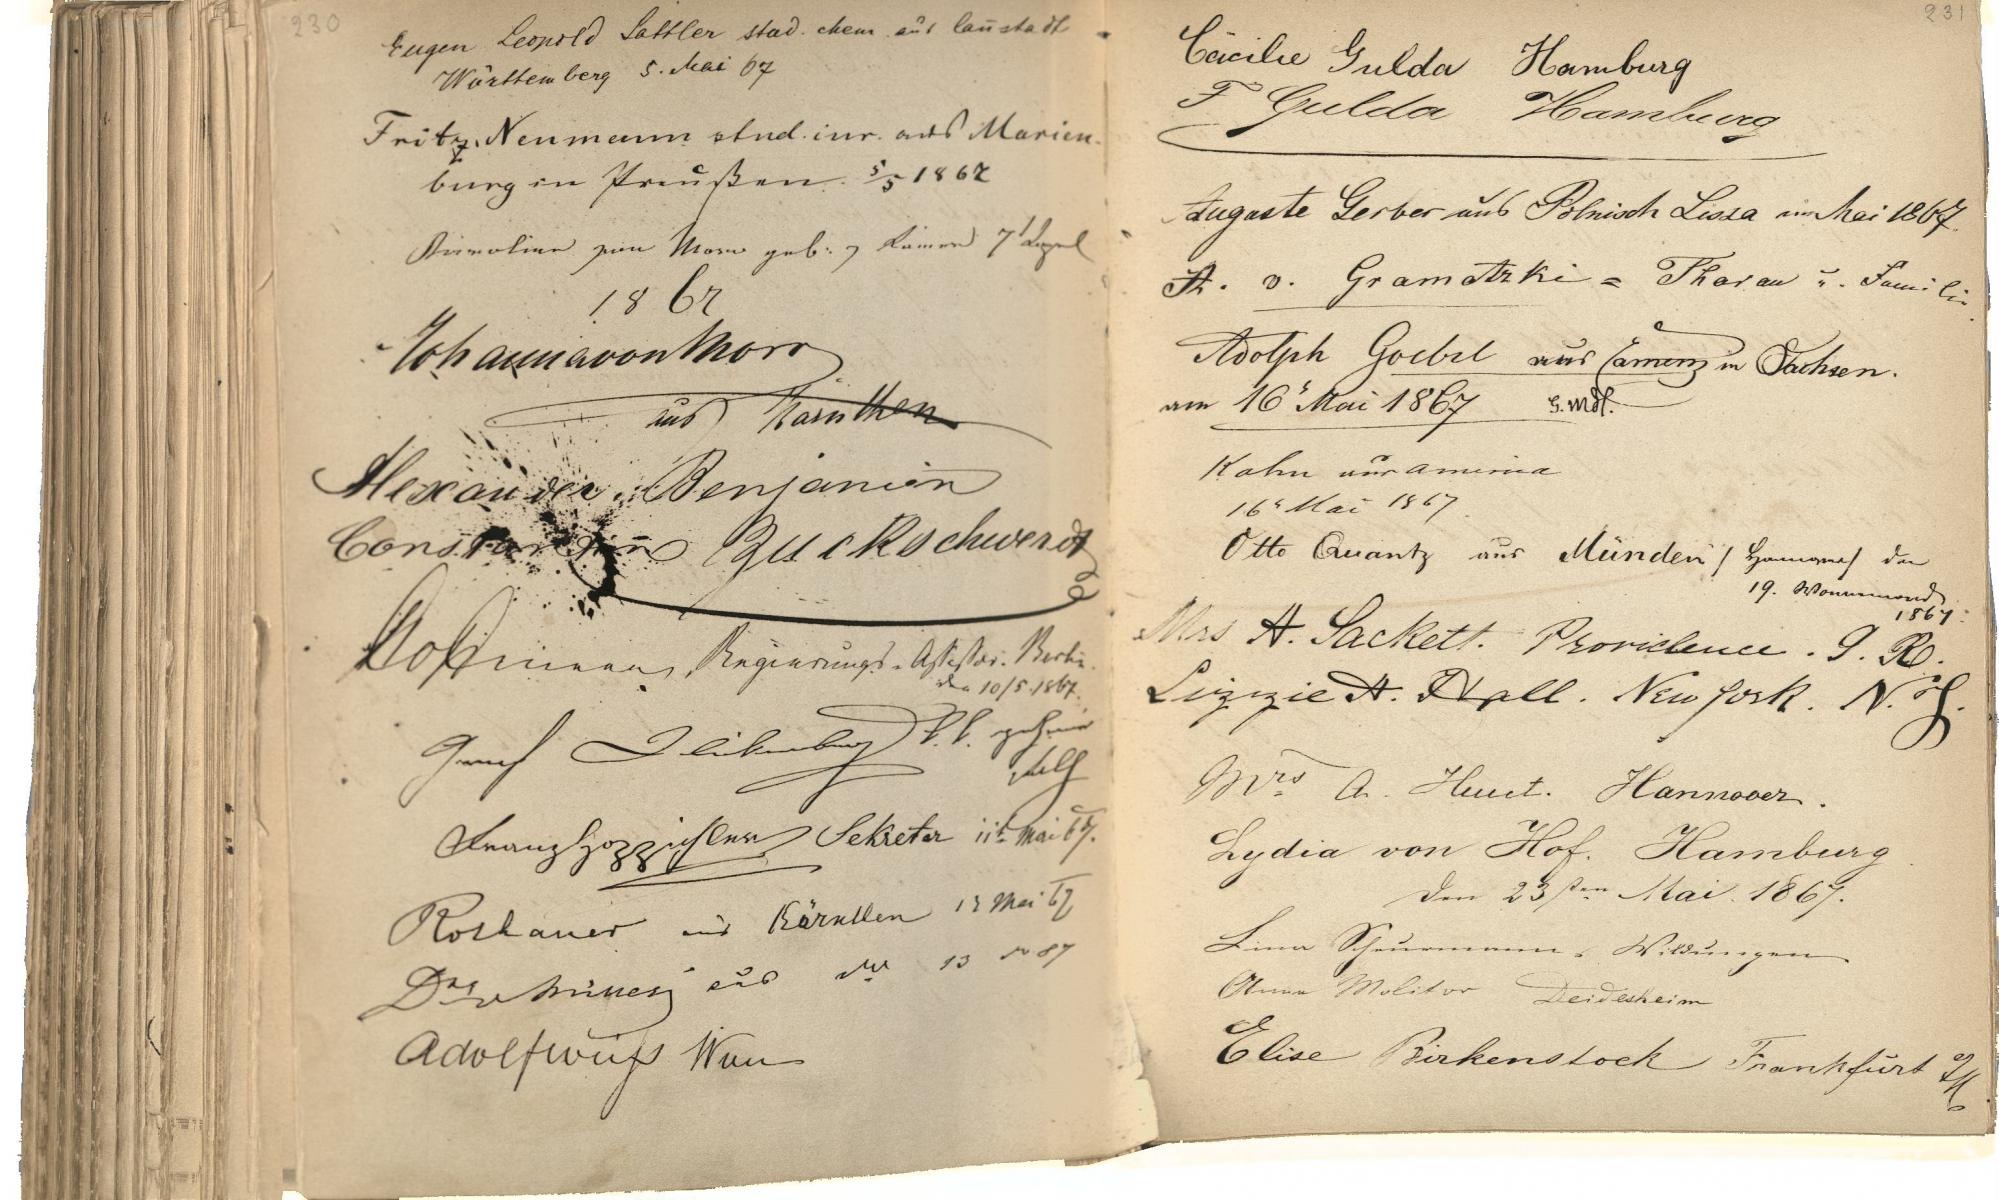 230
Eugen Leopold Sattler stud. chem. aus Canstadt
Württemberg 5. Mai 67
Fritz Neumann stud. iur. aus Marien-
burg in Preußen. 5/5 1867
von Moro geb.
1867
Johanna von Moro
aus Kärnthen
Alexander Benjamin
Constantin Buckschwerdt
Regierungs-Assessor. Berlin
den 10/5.1867.
Graf
Franz Sekretär 11t Mai 67.
aus Kärnthen 13 Mai 67
aus 13
Adolf Weiß Wien
231
Cäcilie Gulda Hamburg
F Gulda Hamburg
Auguste Gerber aus Polnisch Lissa im Mai 1867.
v. Gramatzki = Tharau u. Familie.
Adolph Goebel aus Camenz in Sachsen.
am 16t Mai 1867
Kohn aus America
16t Mai 1867
Otto Quantz aus Münden / Hannover / den
19. Wonnemond
1867.
Mrs A. Sackett. Providence.
Lizzie A. Hall. New York. N.Y.
Mrs A. Huet. Hannover.
Lydia von Hof. Hamburg
den 23sten Mai 1867.
Lina Scheuermann, Wildungen
Anna Molitor Deidesheim
Elise Birkenstock Frankfurt a/M